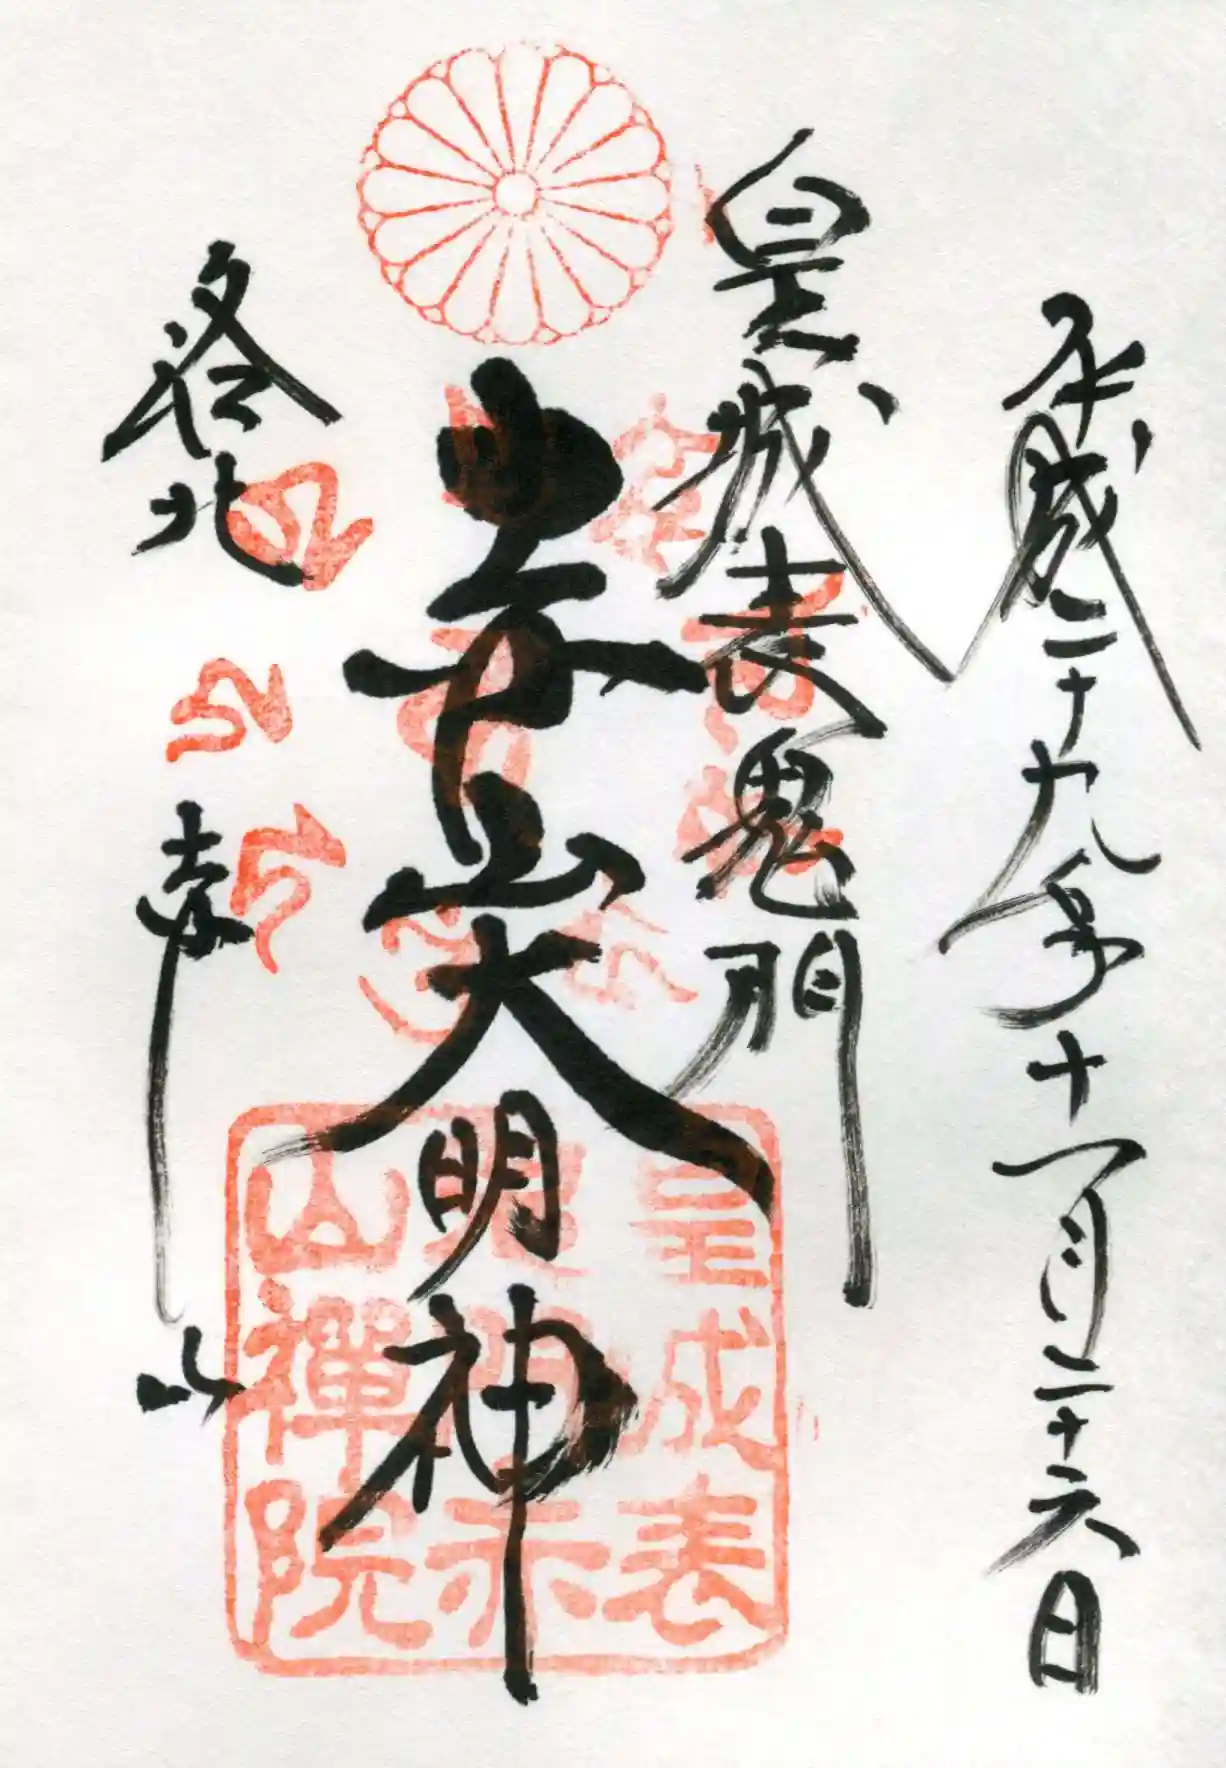 平成二十九年十一月二十六日
皇城表鬼門
赤山大明神
洛北 赤山
皇城表
鬼門赤
山禪院